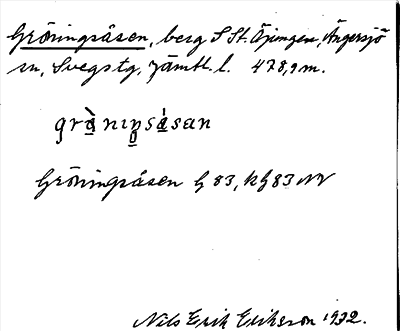 Gröningsåsen, berg S St. Äjingen, Ängersjö
sn, Svegs tg, Jämtl. l. 478,9 m.
Gröningsåsen G 83, kG 83 NV
Nils Erik Eriksson 1932.